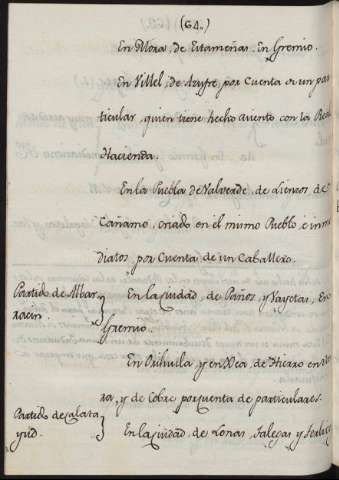 (64.)
En Mora, de Estameñas. En Gremio.
En Villel, de Azufre, por Cuenta de un par
ticular, quien tiene hecho aviento con la Real
Hacienda.
En la Puebla de Valverde, de Lienzos de
Cañamo, criado en el mismo Pueblo, e inme
diatos, por Cuenta de un Caballero.
Partido de Albar En la Ciudad, de Paños, y Vayetas, En
racin Gremio.
En Orihuela, y en Xea, de Hierro en
ra, y de Cobre por quenta de particulares.
Partido de Calata
yud. En la Ciudad, de Lonas, Xalegas, y